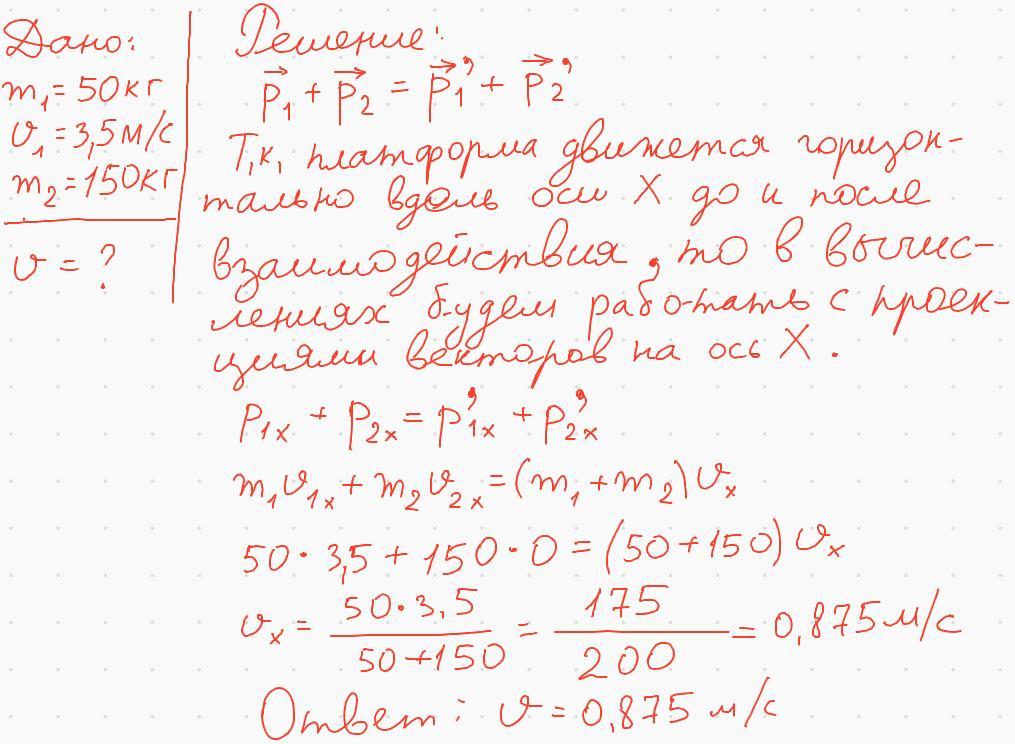 Дано:
m₁ = 50 кг
υ₁ = 3,5 м/с
m₂ = 150 кг
υ = ?
Решение:
p⃗₁ + p⃗₂ = p⃗₁' + p⃗₂'
Т.к. платформа движется горизон-
тально вдоль оси X до и после
взаимодействия, то в вычис-
лениях будем работать с проек-
циями векторов на ось X.
p₁ₓ + p₂ₓ = p'₁ₓ + p'₂ₓ
m₁υ₁ₓ + m₂υ₂ₓ = (m₁ + m₂)υₓ
50·3,5 + 150·0 = (50+150)υₓ
υₓ = 50·3,5 / 50+150 = 175 / 200 = 0,875 м/с
Ответ: υ = 0,875 м/с